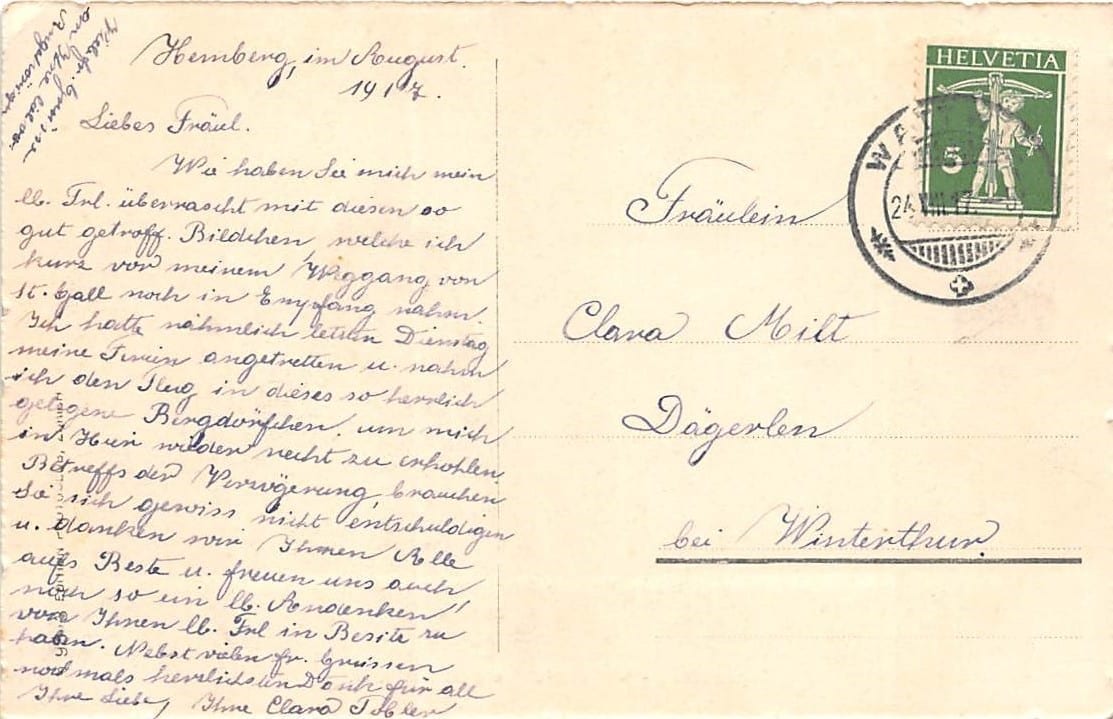 Hemberg, im August.
1917.
Liebes Fräul.
Wie haben Sie mich mein
lb. Frl. überrascht mit diesen so
gut getroff. Bildchen, welche ich
kurz vor meinem Weggang von
St. Gall noch in Empfang nahm.
Ich hatte nähmlich letzten Dienstag
meine Ferien angetretten u. nahm
ich den Flug in dieses so herrlich
gelegene Bergdörfchen, um mich
in Hier wieder recht zu erhohlen.
Betreffs der Verzögerung, brauchen
Sie sich gewiss nicht entschuldigen
u. danken wir Ihnen Alle
aufs Beste u. freuen uns auch
noch so ein lb. Andenken
von Ihnen lb. Frl in Besitz zu
haben. Nebst vielen fr. Grüssen
nochmals herzlichsten Dank für all
Ihre Liebe, Ihre Clara Tobler
an Ihre
HELVETIA
5
24.VIII.17
Fräulein
Clara Milt
Dägerlen
bei Winterthur.